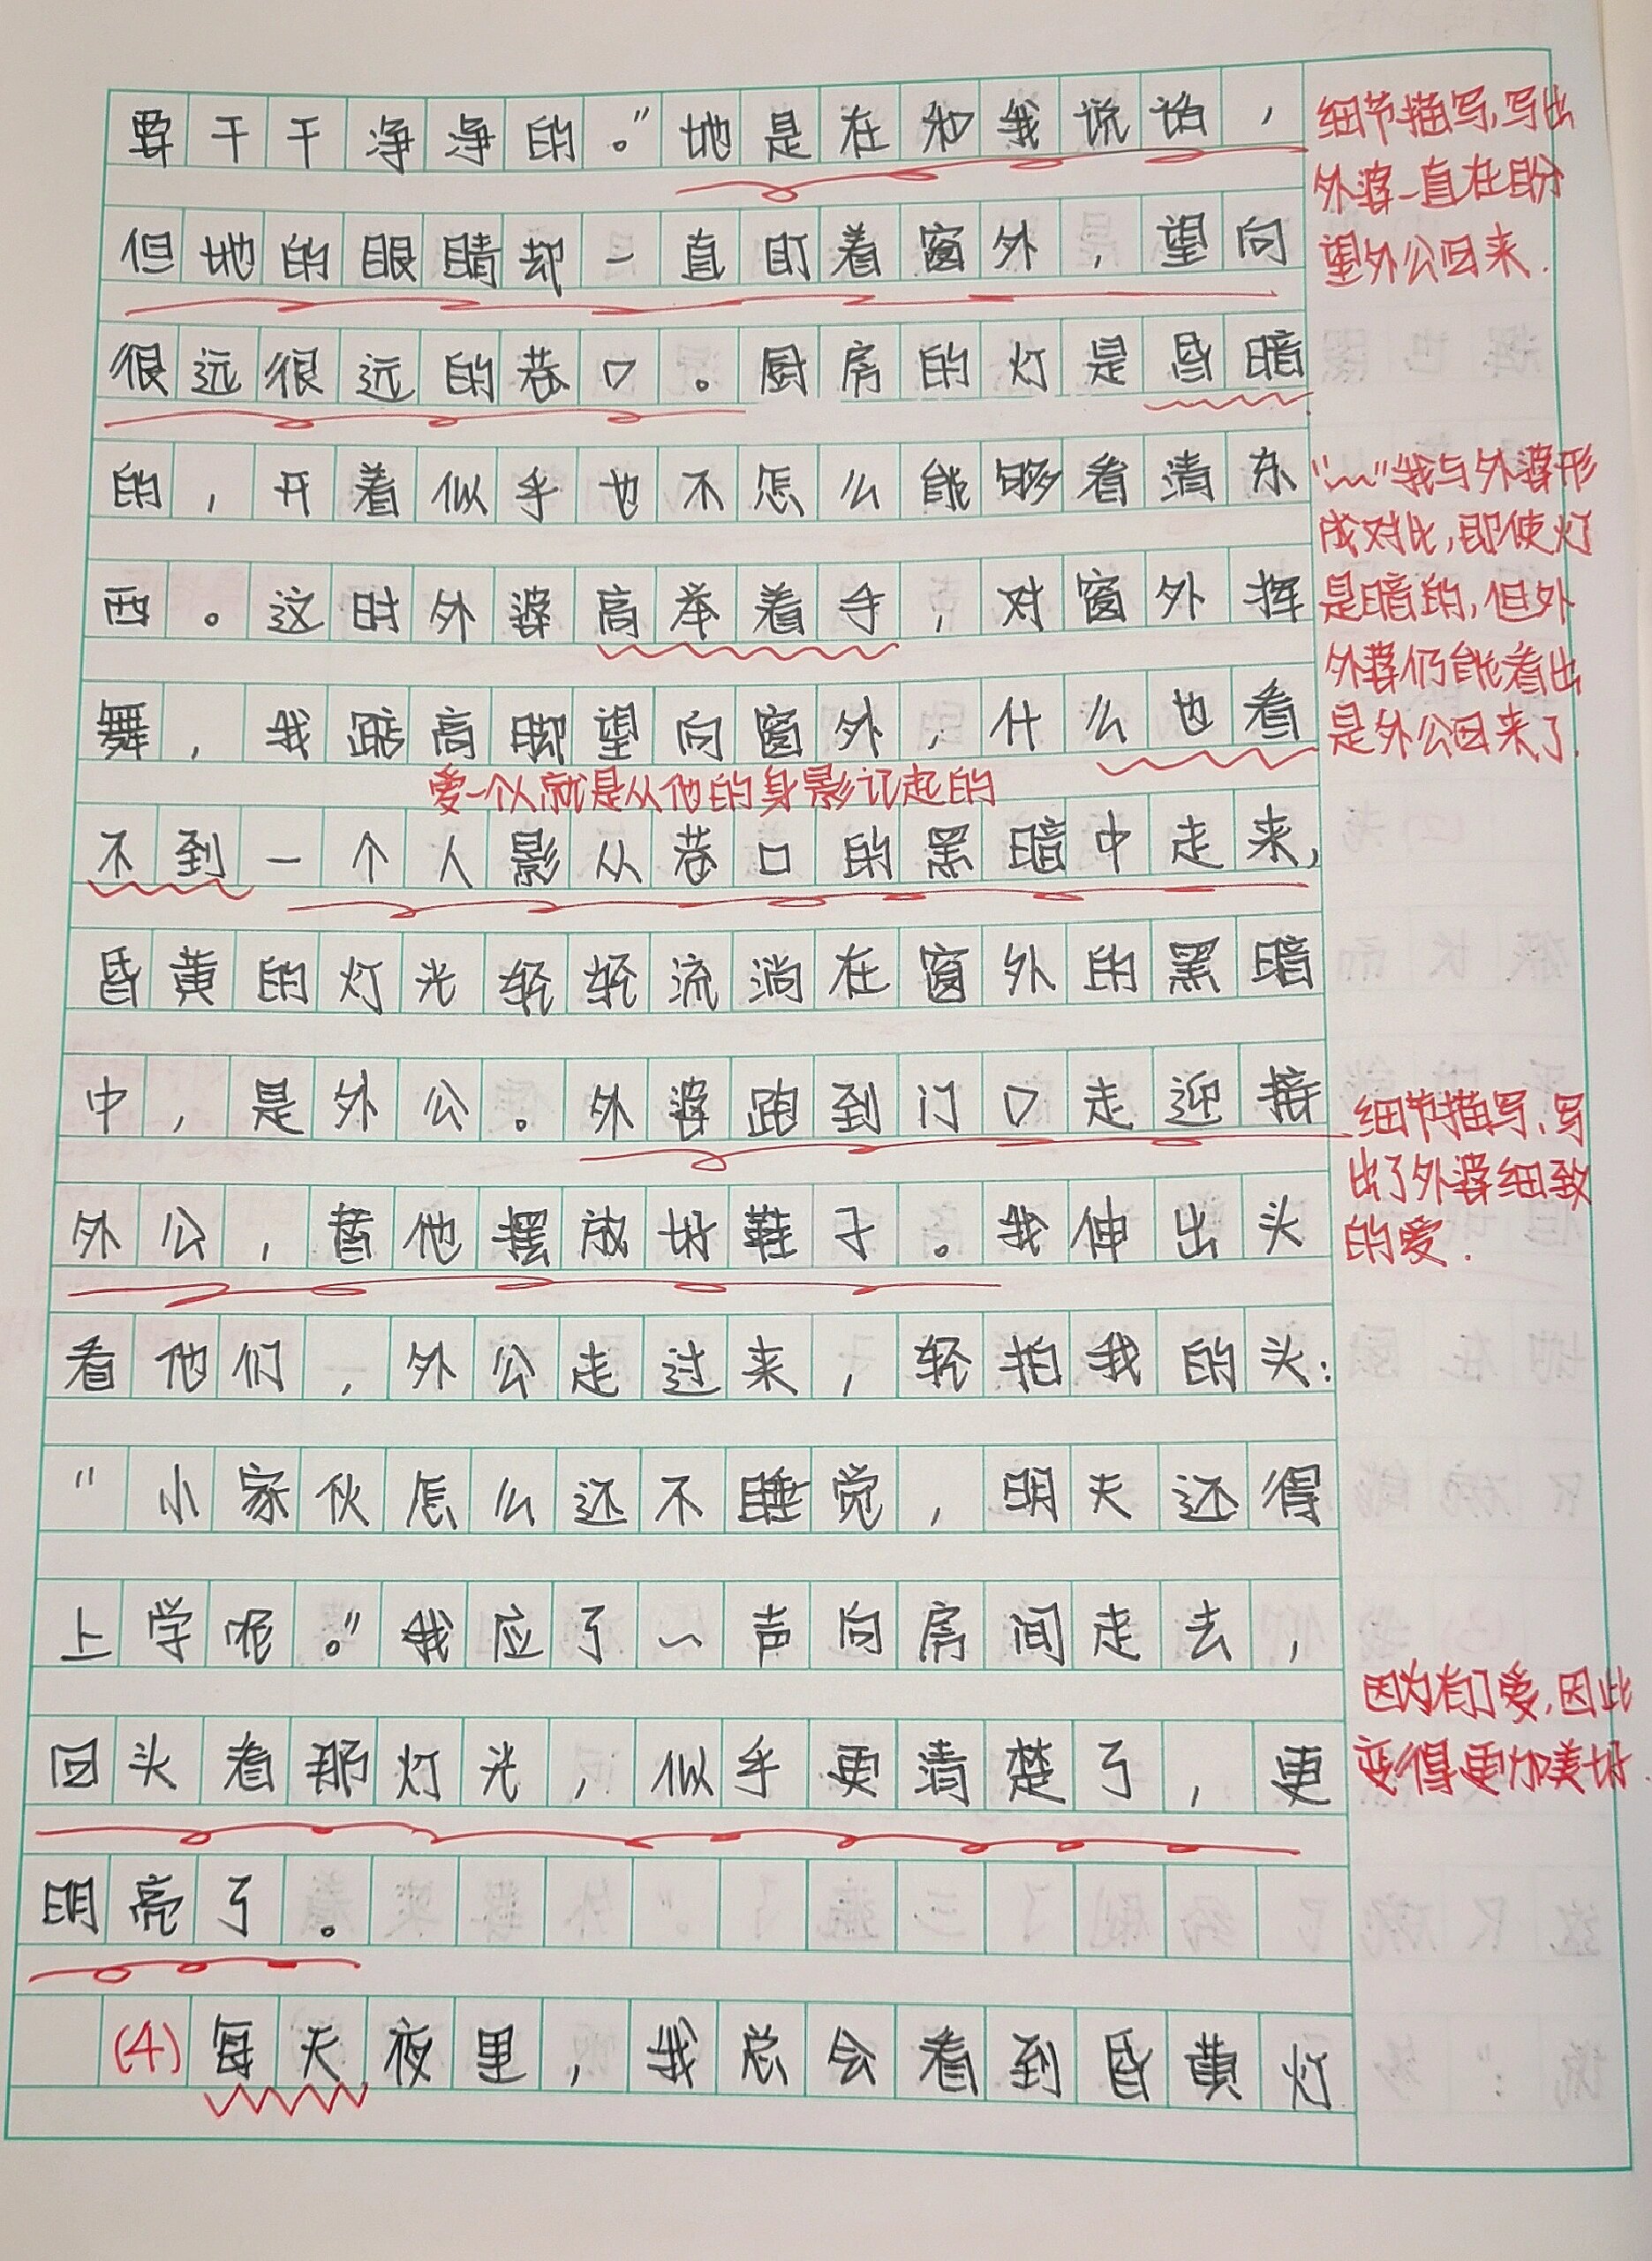 要干干净净的。”她是在和我说话，
细节描写，写出
外婆一直在盼
望外公回来.
但她的眼睛却一直盯着窗外，望向
很远很远的巷口。厨房的灯是昏暗
的，开着似乎也不怎么能够看清东
“﹏”我与外婆形
成对比，即使灯
是暗的，但外
外婆仍能看出
是外公回来了.
西。这时外婆高举着手，对窗外挥
舞，我踮高脚望向窗外，什么也看
爱一个人就是从他的身影记起的
不到一个人影从巷口的黑暗中走来，
昏黄的灯光轻轻流淌在窗外的黑暗
中，是外公。外婆跑到门口走迎接
细节描写，写
出了外婆细致
的爱.
外公，替他摆放好鞋子。我伸出头
看他们，外公走过来，轻拍我的头：
“小家伙怎么还不睡觉，明天还得
上学呢。”我应了一声向房间走去，
回头看那灯光，似乎更清楚了，更
因为有了爱，因此
变得更加美好.
明亮了。
(4)每天夜里，我总会看到昏黄灯